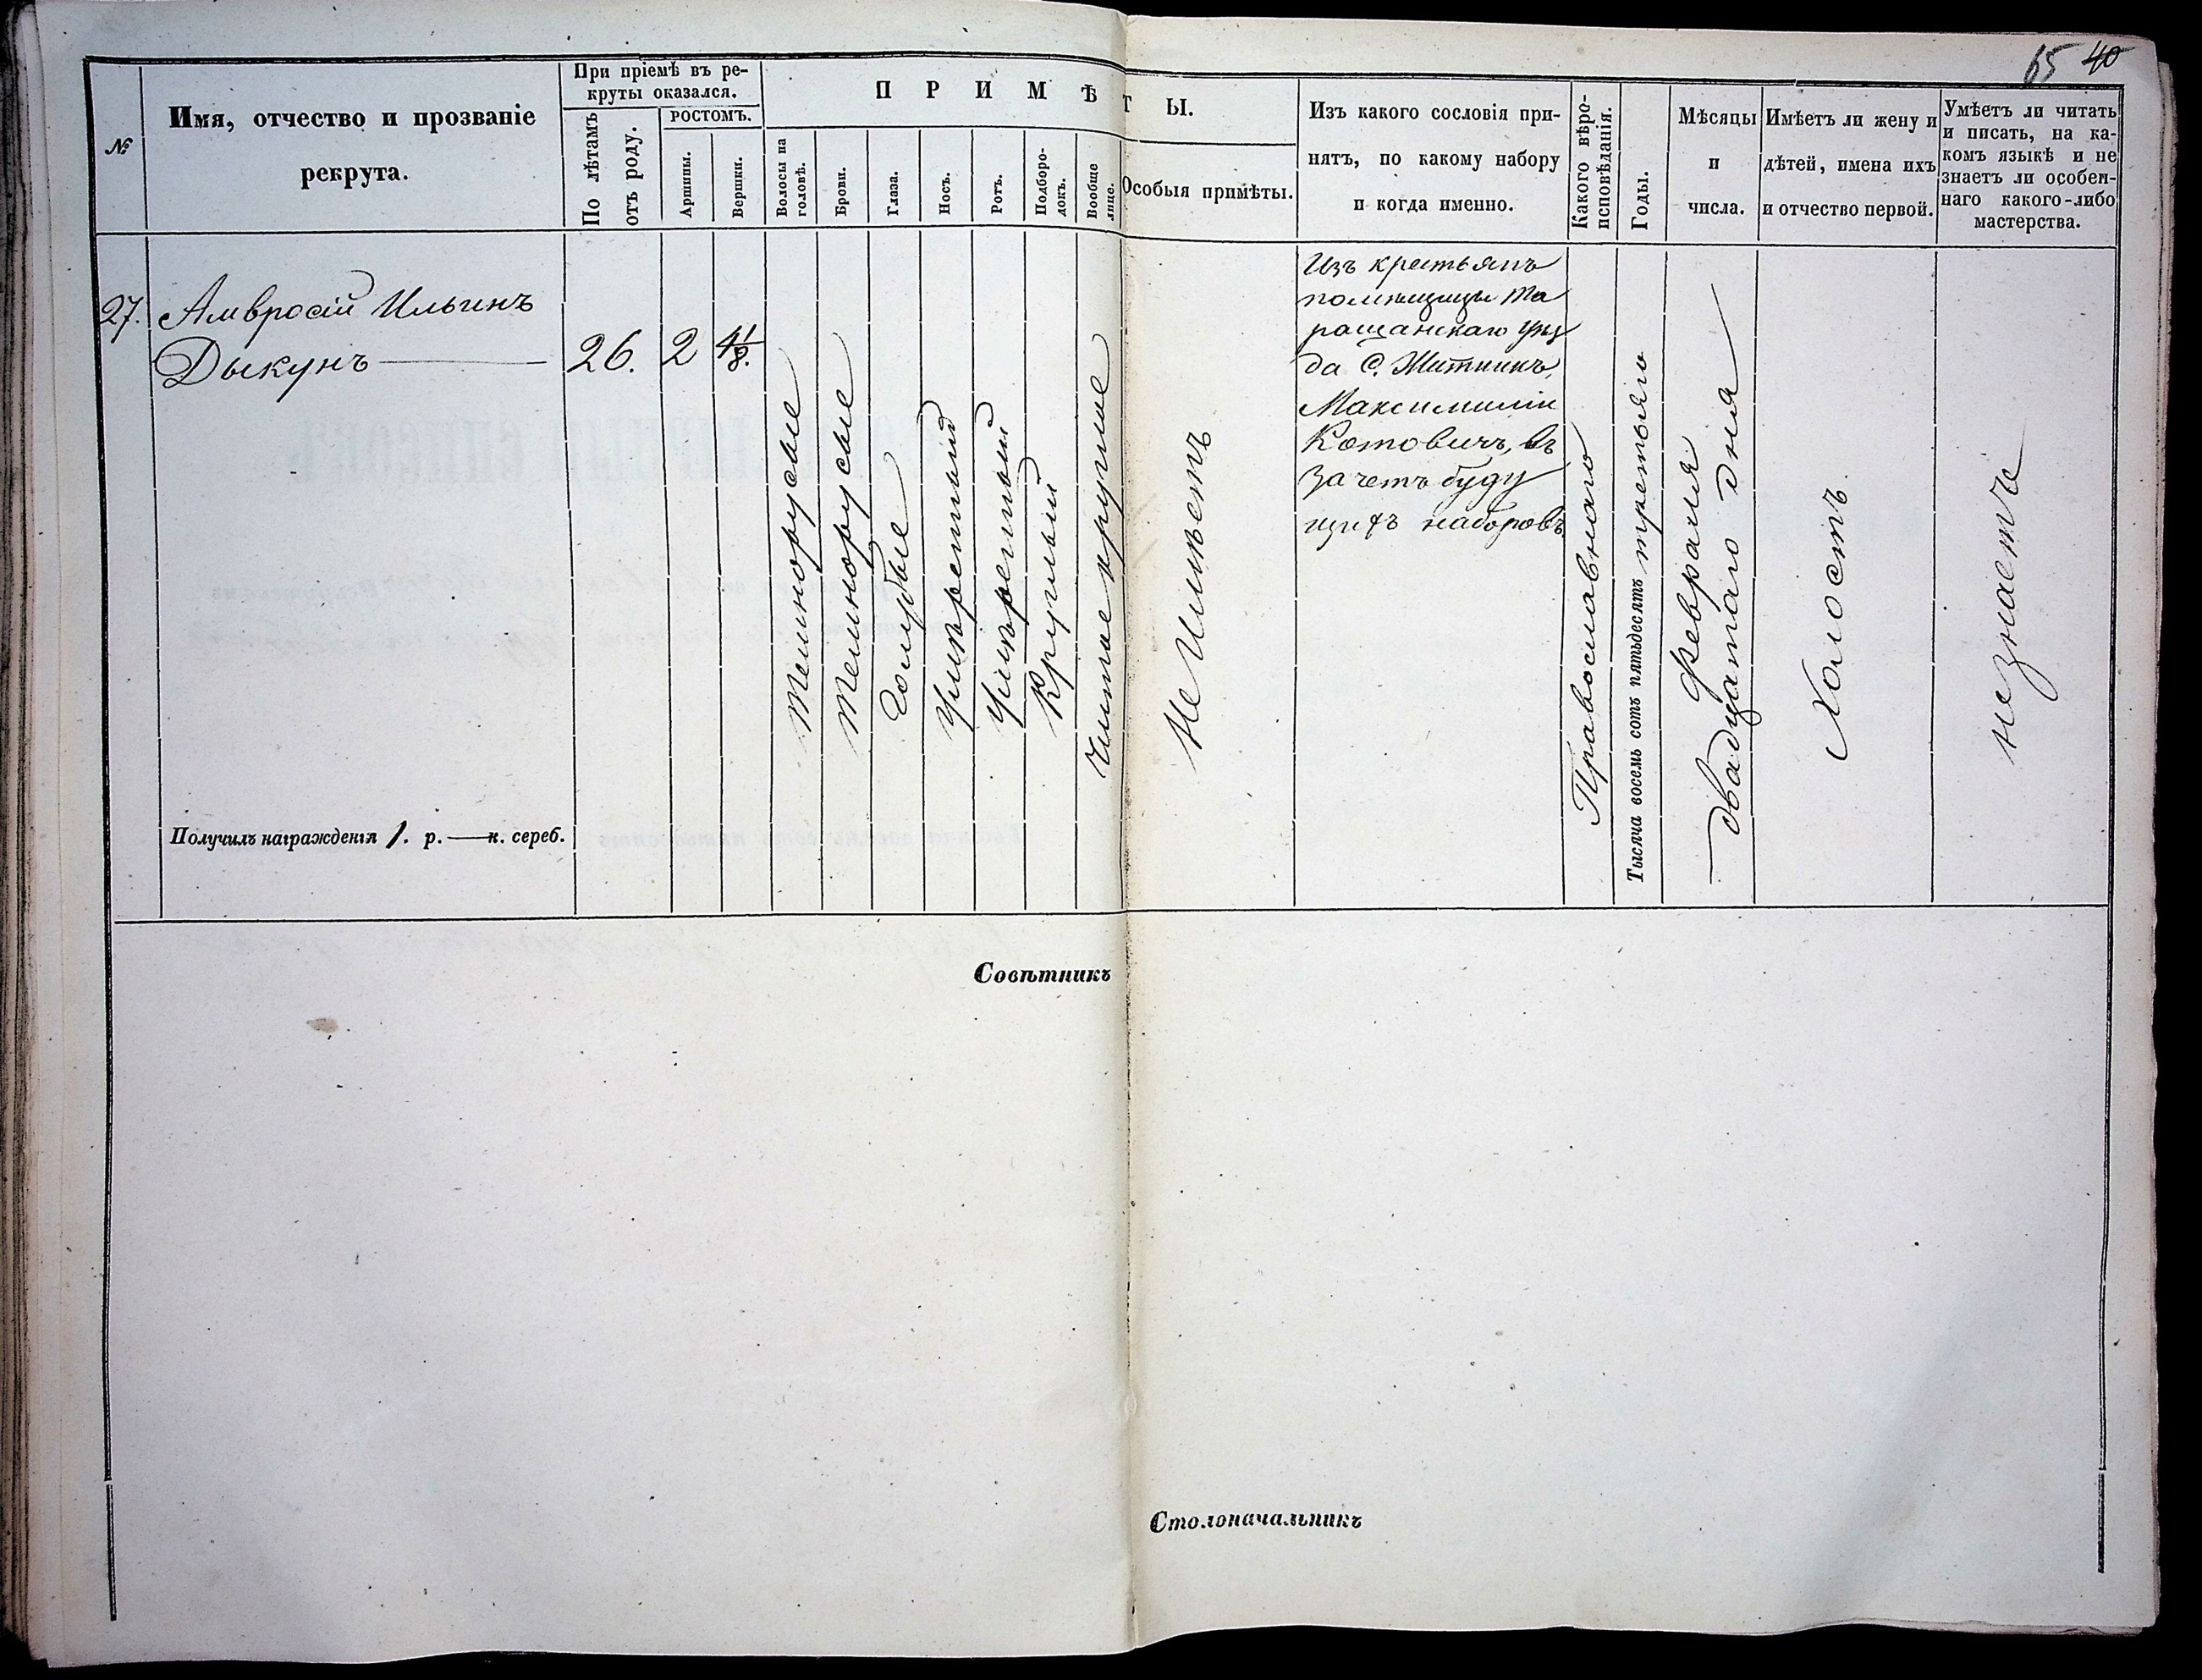 65 40
№
Имя, отчество и прозваніе
рекрута.
При пріемѣ въ ре-
круты оказался.
По лѣтамъ
отъ роду.
ростомъ.
Аршины.
Вершки.
ПРИМѢТЫ.
Волосы на
головѣ.
Брови.
Глаза.
Носъ.
Ротъ.
Подборо-
докъ.
Вообще
лице.
Особыя примѣты.
Изъ какого сословія при-
нятъ, по какому набору
и когда именно.
Какого вѣро-
исповѣданія.
Годы.
Мѣсяцы
и
числа.
Имѣетъ ли жену и
дѣтей, имена ихъ
и отчество первой.
Умѣетъ ли читать
и писать, на ка-
комъ языкѣ и не
знаетъ ли особен-
наго какого-либо
мастерства.
27.
Амвросій Ильинъ
Дыкунъ
26.
2
4 1/8.
темнорусые
темнорусые
голубые
умѣренный
умѣренный
круглый
чистое круглое
не имѣетъ
Изъ крестьянъ
помѣщицы Та
ращанскаго уѣз
да С. Житникъ,
Максимиліи
Котовичъ, въ
зачетъ буду
щихъ наборовъ
Православнаго
Тысяча восемь сотъ пятьдесятъ третьяго
Февраля
двадцатаго дня
Холостъ.
не знаетъ
Получилъ награжденія 1. р. — к. сереб.
Совѣтникъ
Столоначальникъ